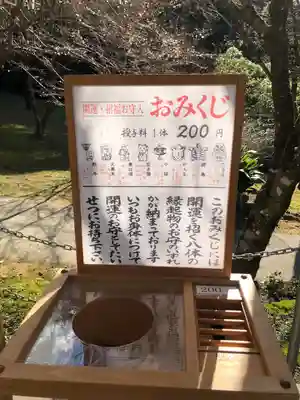 開運・招福お守入
おみくじ
授与料 1体 200円
このおみくじには
開運を招く八体の
縁起物のお守いずれ
かが納まっております
いつもお身体につけて
開運のお守としたい
せつにお持ち下さい
200